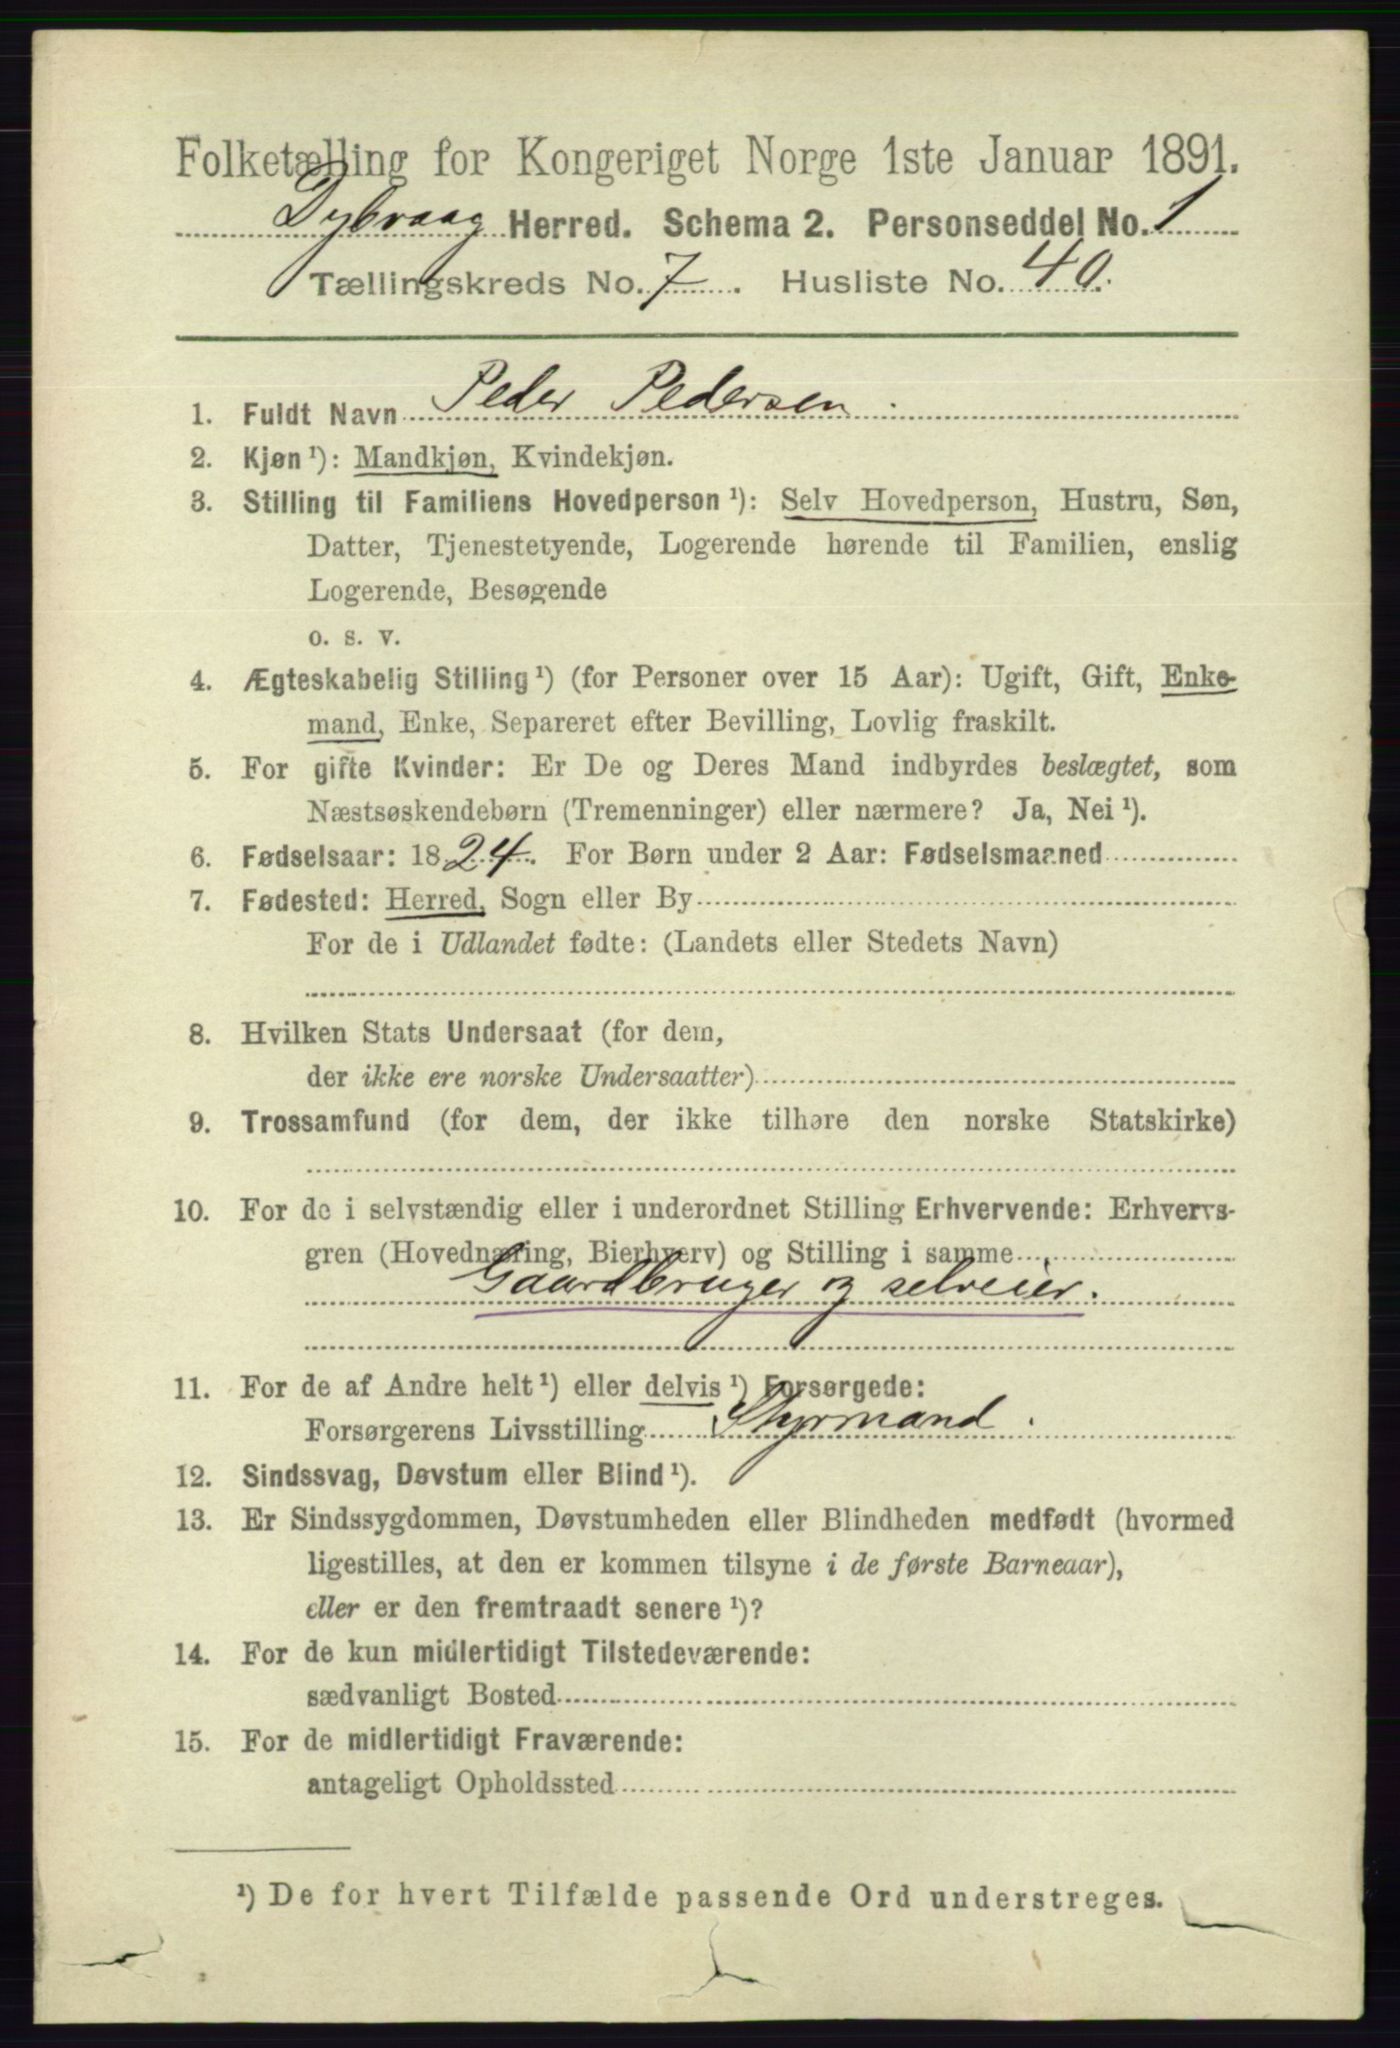 Folketælling for Kongeriget Norge 1ste Januar 1891.
Dybvaag Herred. Schema 2. Personseddel No. 1
Tællingskreds No. 7. Husliste No. 40.
1. Fuldt Navn Peder Pedersen.
2. Kjøn ¹): Mandkjøn, Kvindekjøn.
3. Stilling til Familiens Hovedperson ¹): Selv Hovedperson, Hustru, Søn,
Datter, Tjenestetyende, Logerende hørende til Familien, enslig
Logerende, Besøgende
o. s. v.
4. Ægteskabelig Stilling ¹) (for Personer over 15 Aar): Ugift, Gift, Enke-
mand, Enke, Separeret efter Bevilling, Lovlig fraskilt.
5. For gifte Kvinder: Er De og Deres Mand indbyrdes beslægtet, som
Næstsøskendebørn (Tremenninger) eller nærmere? Ja, Nei ¹).
6. Fødselsaar: 1824. For Børn under 2 Aar: Fødselsmaaned
7. Fødested: Herred, Sogn eller By
For de i Udlandet fødte: (Landets eller Stedets Navn)
8. Hvilken Stats Undersaat (for dem,
der ikke ere norske Undersaatter)
9. Trossamfund (for dem, der ikke tilhøre den norske Statskirke)
10. For de i selvstændig eller i underordnet Stilling Erhvervende: Erhvervs-
gren (Hovednæring, Bierhverv) og Stilling i samme
Gaardbruger og selveier.
11. For de af Andre helt ¹) eller delvis ¹) Forsørgede:
Forsørgerens Livsstilling Styrmand.
12. Sindssvag, Døvstum eller Blind ¹).
13. Er Sindssygdommen, Døvstumheden eller Blindheden medfødt (hvormed
ligestilles, at den er kommen tilsyne i de første Barneaar),
eller er den fremtraadt senere ¹)?
14. For de kun midlertidigt Tilstedeværende:
sædvanligt Bosted
15. For de midlertidigt Fraværende:
antageligt Opholdssted
¹) De for hvert Tilfælde passende Ord understreges.